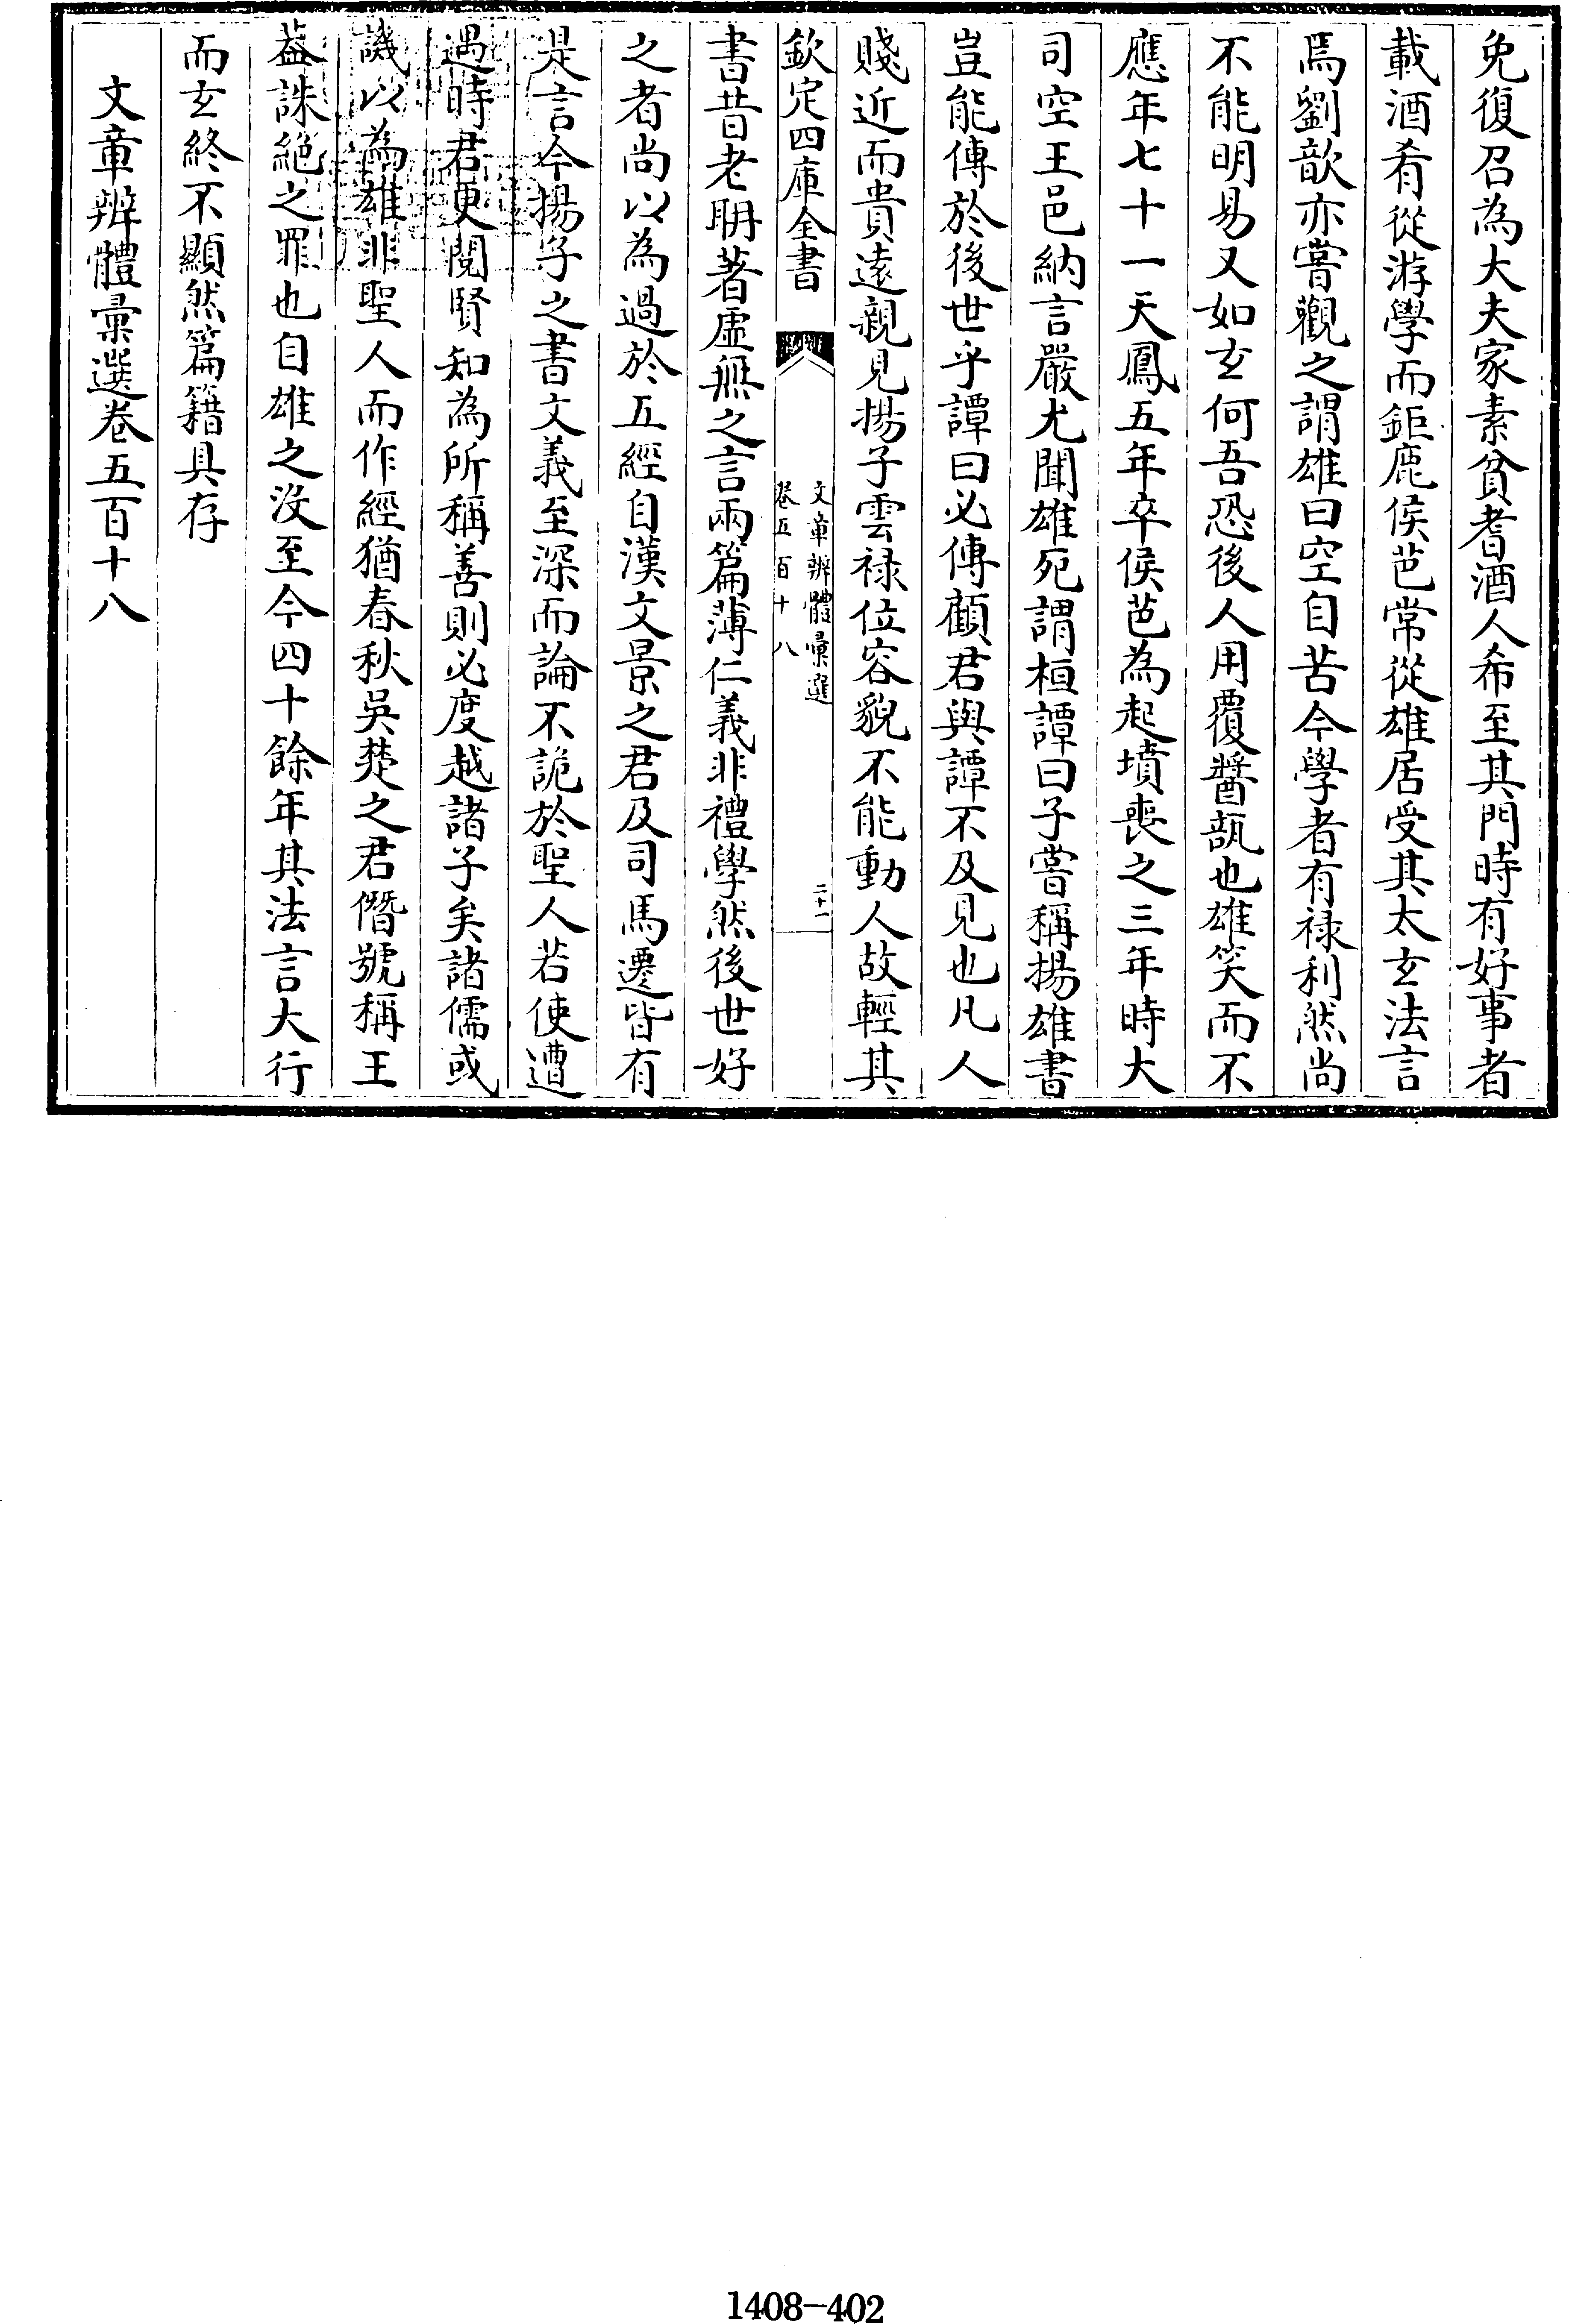 免復召為大夫家素貧耆酒人希至其門時有好事者
載酒肴從游學而鉅鹿侯芭常從雄居受其太玄法言
焉劉歆亦嘗觀之謂雄曰空自苦今學者有祿利然尚
不能明易又如玄何吾恐後人用覆醬瓿也雄笑而不
應年七十一天鳳五年卒侯芭為起墳喪之三年時大
司空王邑納言嚴尤聞雄死謂桓譚曰子嘗稱揚雄書
豈能傳於後世乎譚曰必傳顧君與譚不及見也凡人
賤近而貴遠親見揚子雲祿位容貌不能動人故輕其
欽定四庫全書
文章辨體彙選
卷五百十八
二十一
書昔老耼著虛無之言兩篇薄仁義非禮學然後世好
之者尚以為過於五經自漢文景之君及司馬遷皆有
是言今揚子之書文義至深而論不詭於聖人若使遭
遇時君更閱賢知為所稱善則必度越諸子矣諸儒或
譏以為雄非聖人而作經猶春秋吳楚之君僭號稱王
葢誅絕之罪也自雄之沒至今四十餘年其法言大行
而玄終不顯然篇籍具存
文章辨體彙選卷五百十八
1408-402